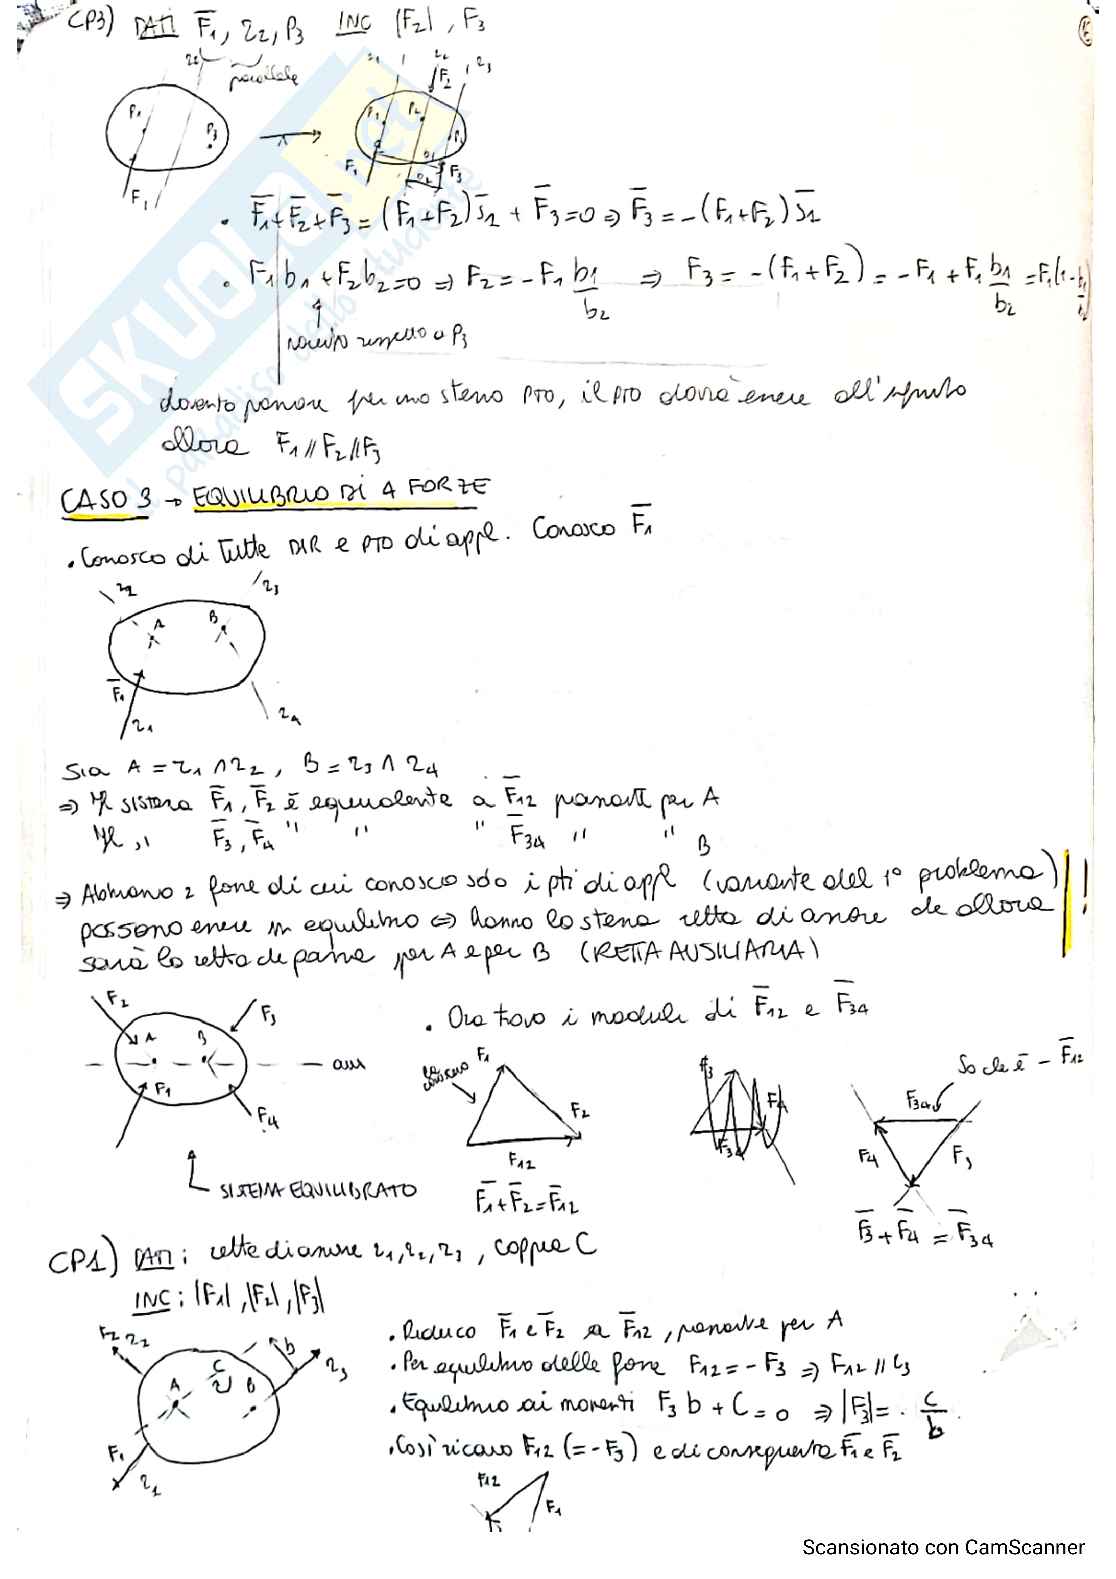 CP3) DATI F̅1, r2, P3 INC |F2|, F3
r2 parallele
P1 P3 F1
r1 r2 r3 F2
P1 P2 P3 F1 F3
• F̅1+F̅2+F̅3=(F1+F2)s̅1 + F̅3=0 ⇒ F̅3=-(F1+F2)s̅1
• F1b1+F2b2=0 ⇒ F2=-F1 b1/b2 ⇒ F3=-(F1+F2)=-F1+F1 b1/b2 =F1(1-b1/b2)
momento rispetto a P3
dovendo passare per uno stesso PTO, il PTO dovrà essere all'infinito
allora F1//F2//F3
CASO 3 → EQUILIBRIO DI 4 FORZE
• Conosco di tutte DIR e PTO di appl. Conosco F̅1
r2 r3
A B
F̅1 r1 r4
Sia A = r1 ∩ r2, B = r3 ∩ r4
⇒ Il sistema F̅1, F̅2 è equivalente a F̅12 passante per A
Il " F̅3, F̅4 " " " F̅34 " " B
⇒ Abbiamo 2 forze di cui conosco solo i pti di appl (variante del 1° problema)
possono essere in equilibrio ⇔ hanno la stessa retta di azione che allora
sarà la retta che passa per A e per B (RETTA AUSILIARIA)
!
F2 F3
A B aux
F1 F4
SISTEMA EQUILIBRATO
• Ora trovo i moduli di F̅12 e F̅34
lo conosco F1 F2 F12
F̅1+F̅2=F̅12
F3 F4 F34
So che è -F̅12
F34 F4 F3
F̅3+F̅4=F̅34
CP1) DATI: rette di azione r1, r2, r3, coppia C
INC: |F1|, |F2|, |F3|
F2 r2 C b r3
A B
F1 r1
• Riduco F̅1 e F̅2 a F̅12, passante per A
• Per equilibrio delle forze F12=-F3 ⇒ F12 // r3
• Equilibrio ai momenti F3 b + C = 0 ⇒ |F3|= C/b
• Così ricavo F12 (=-F3) e di conseguenza F̅1 e F̅2
F12 F1
Scansionato con CamScanner
SKUOLA.net
il paradiso dello studente